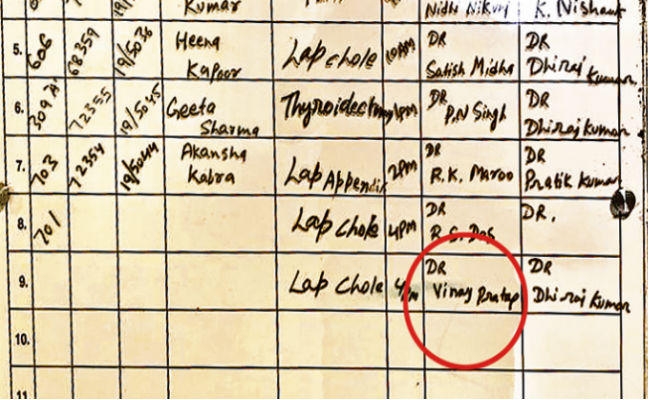 Kumar Nidhi Nikunj K. Nishant
5. 606 68359 19/5036 Heena Kapoor Lap chole 10AM DR Satish Midha DR Dhiraj Kumar
6. 309 A 72355 19/5045 Geeta Sharma Thyroidectomy 1pm DR P.N Singh DR Dhiraj Kumar
7. 703 72354 19/5044 Akansha Kabra Lap Appendix 2pm DR R.K. Maroo DR Pratik Kumar
8. 701 Lap Chole 4pm DR R.S. Das DR.
9. Lap Chole 4pm DR Vinay Pratap DR Dhiraj Kumar
10.
11